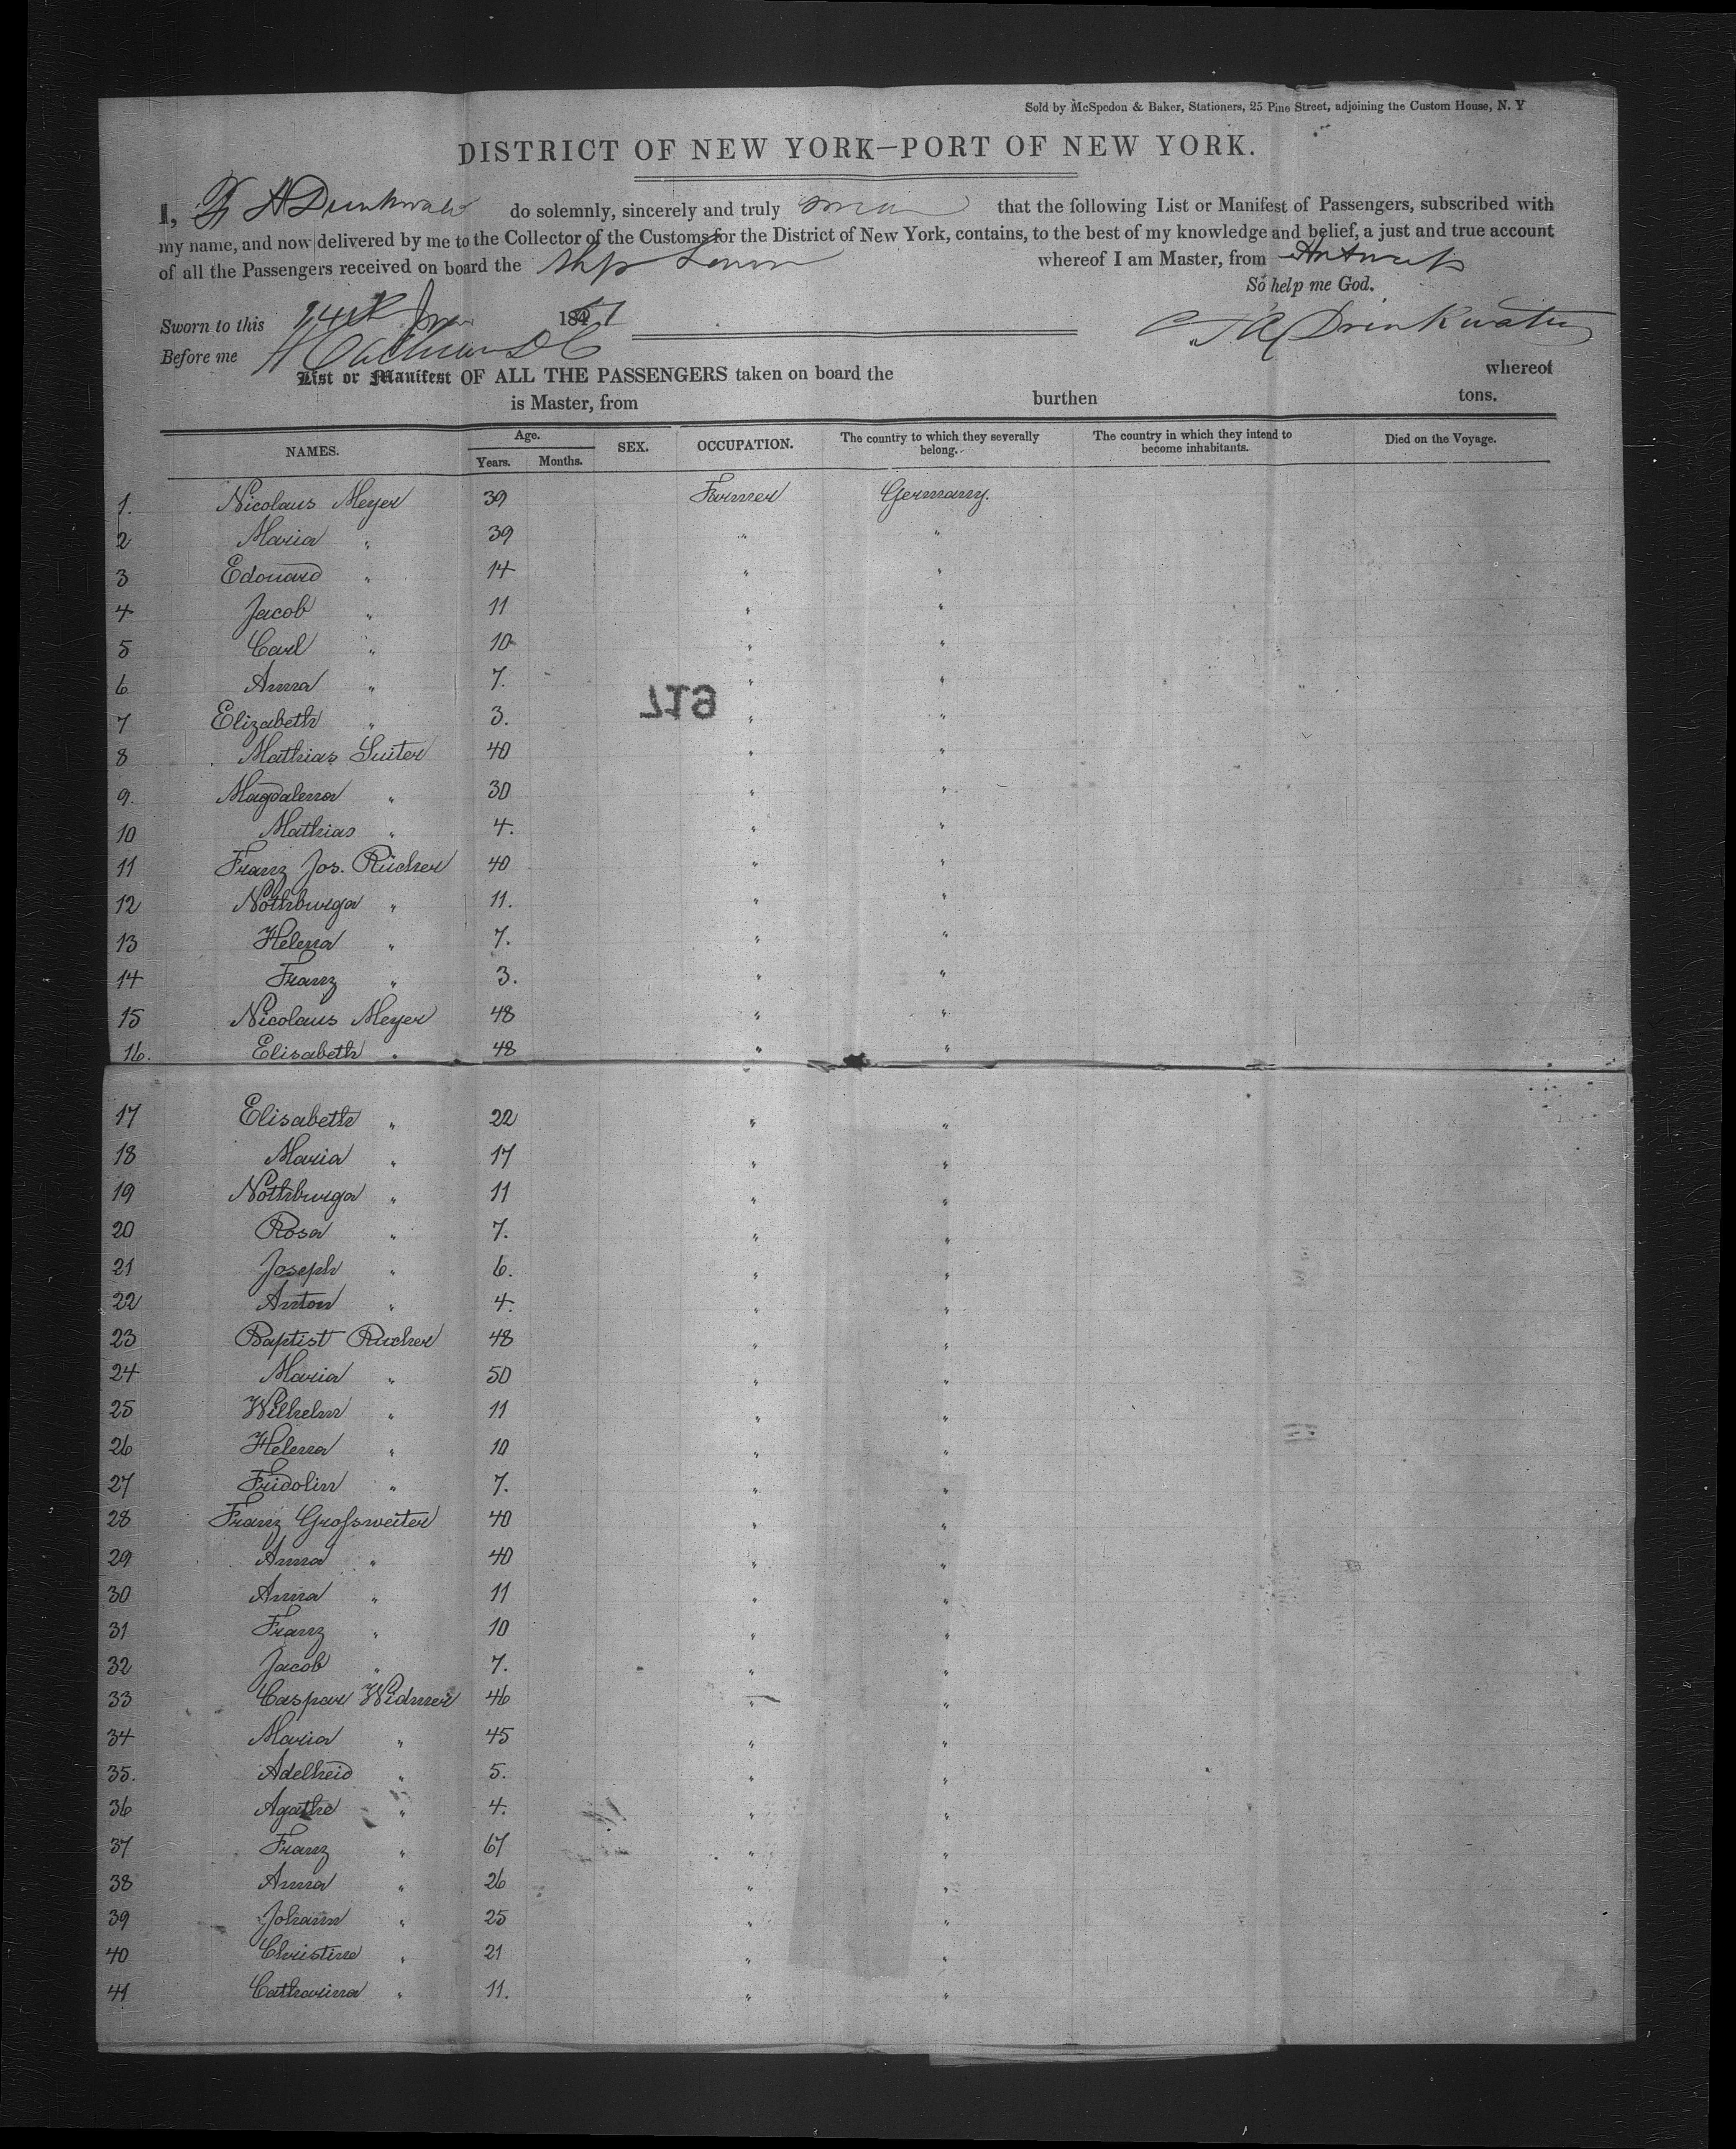 Sold by McSpedon & Baker, Stationers, 25 Pine Street, adjoining the Custom House, N. Y
DISTRICT OF NEW YORK—PORT OF NEW YORK.
I, A Drinkwater do solemnly, sincerely and truly swear that the following List or Manifest of Passengers, subscribed with
my name, and now delivered by me to the Collector of the Customs for the District of New York, contains, to the best of my knowledge and belief, a just and true account
of all the Passengers received on board the Ship whereof I am Master, from Antwerp
So help me God.
Sworn to this 1851
A Drinkwater
Before me
List or Manifest OF ALL THE PASSENGERS taken on board the whereof
is Master, from burthen tons.
NAMES. Age. Years. Months. SEX. OCCUPATION. The country to which they severally belong. The country in which they intend to become inhabitants. Died on the Voyage.
1. Nicolaus Meyer 39 Farmer Germany.
2 Maria " 39 " "
3 Edouard " 14 " "
4 Jacob " 11 " "
5 Carl " 10 " "
6 Anna " 7. " "
719
7 Elizabeth " 3. " "
8 Mathias Suiter 40 " "
9. Magdalena " 30 " "
10 Mathias " 4. " "
11 Franz Jos. Rücher 40 " "
12 Nothburga " 11. " "
13 Helena " 7. " "
14 Franz " 3. " "
15 Nicolaus Meyer 48 " "
16. Elisabeth " 48 " "
17 Elisabeth " 22 " "
18 Maria " 17 " "
19 Nothburga " 11 " "
20 Rosa " 7. " "
21 Joseph " 6. " "
22 Anton " 4. " "
23 Baptist Rucher 48 " "
24 Maria " 50 " "
25 Wilhelm " 11 " "
26 Helena " 10 " "
27 Fridolin " 7. " "
28 Franz Großweiter 40 " "
29 Anna " 40 " "
30 Anna " 11 " "
31 Franz " 10 " "
32 Jacob " 7. " "
33 Caspar Widmer 46 " "
34 Maria " 45 " "
35. Adelheid " 5. " "
36 Agathe " 4. " "
37 Franz " 67 " "
38 Anna " 26 " "
39 Johann " 25 " "
40 Christine " 21 " "
41 Catharina " 11. " "